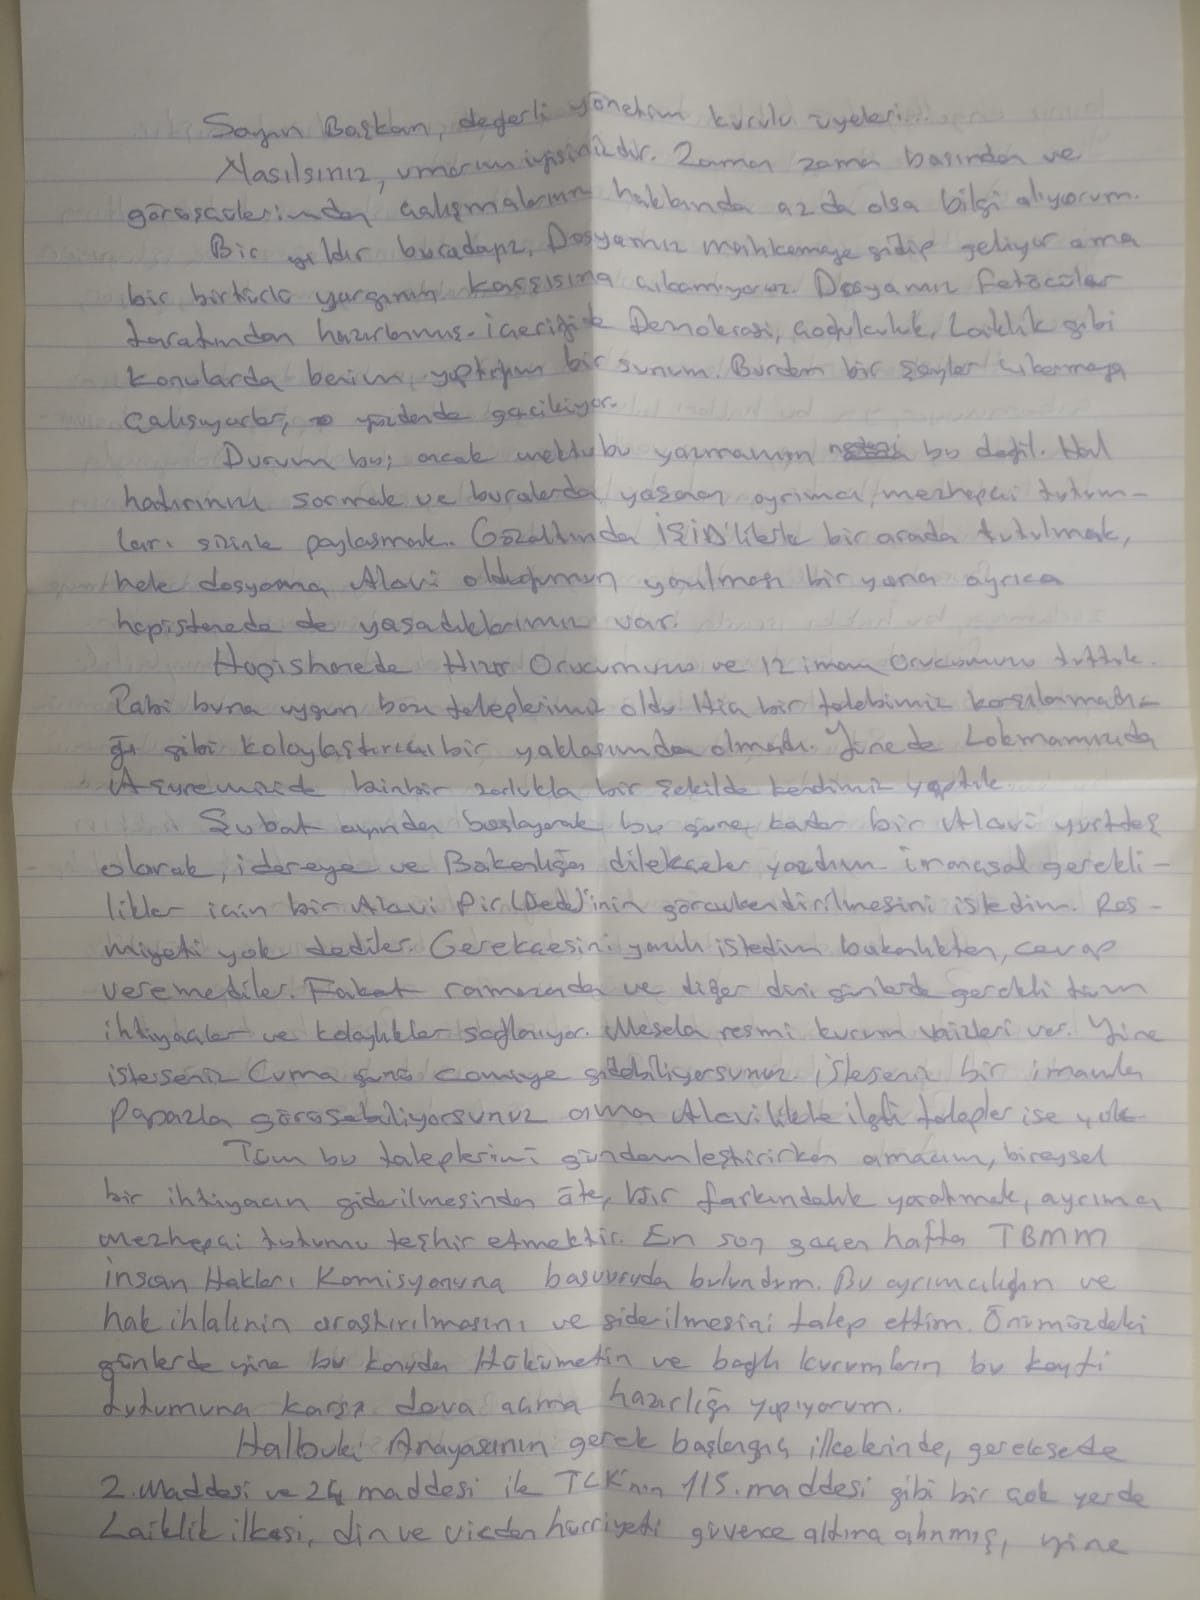 Sayın Başkan, değerli yönetim kurulu üyeleri..
Nasılsınız, umarım iyisinizdir. Zaman zaman basından ve
görüşçülerimden çalışmalarınız hakkında az da olsa bilgi alıyorum.
Bir yıldır buradayız, Dosyamız mahkemeye gidip geliyor ama
bir birtürlü yargının karşısına çıkamıyoruz. Dosyamız Fetöcüler
tarafından hazırlanmış. içeriğide Demokrasi, çoğulculuk, Laiklik gibi
konularda benim yaptığım bir sunum. Burdan bir şeyler çıkarmaya
çalışıyorlar, o yüzdende gecikiyor.
Durum bu; ancak mektubu yazmamın bu değil. Hal
hatırınızı sormak ve buralarda yaşanan ayrımcı, mezhepçi tutum-
ları sizinle paylaşmak. Gözaltında IŞİD'lilerle bir arada tutulmak,
hele dosyama Alevi olduğumun yazılması bir yana ayrıca
hapisanede de yaşadıklarımız var.
Hapishanede Hızır Orucumuzu ve 12 imam Orucumuzu tuttuk.
Tabi buna uygun bazı taleplerimiz oldu Hiç bir talebimiz karşılanmadı-
ğı gibi kolaylaştırıcı bir yaklaşımda olmadı. Yinede Lokmamızıda
Aşuremizide binbir zorlukla bir şekilde kendimiz yaptık.
Şubat ayından başlayarak bu güne kadar bir Alevi yurttaş
olarak, idareye ve Bakanlığa dilekçeler yazdım. inançsal gerekli-
likler için bir Alevi Pir(Dede)'inin görevlendirilmesini istedim. Res-
miyeti yok dediler. Gerekçesini yazılı istedim bakanlıktan, cevap
veremediler. Fakat ramazanda ve diğer dini günlerde gerekli tüm
ihtiyaçlar ve kolaylıklar sağlanıyor. Mesela resmi kurum vaizleri var. Yine
isterseniz Cuma günü camiye gidebiliyorsunuz. isterseniz bir imamla
Papazla görüşebiliyorsunuz ama Alevilikle ilgili talepler ise yok.
Tüm bu taleplerimi gündemleştirirken amacım, bireysel
bir ihtiyacın giderilmesinden öte, bir farkındalık yaratmak, ayrımcı
mezhepçi tutumu teşhir etmektir. En son geçen hafta TBMM
insan Hakları Komisyonuna başvuruda bulundum. Bu ayrımcılığın ve
hak ihlalinin araştırılmasını ve giderilmesini talep ettim. Önümüzdeki
günlerde yine bu konuda Hükümetin ve bağlı kurumların bu keyfi
tutumuna karşı dava açma hazırlığı yapıyorum.
Halbuki Anayasanın gerek başlangıç ilkelerinde, gereksede
2. maddesi ve 24 maddesi ile TCK'nın 115. maddesi gibi bir çok yerde
Laiklik ilkesi, din ve vicdan hürriyeti güvence altına alınmış, yine